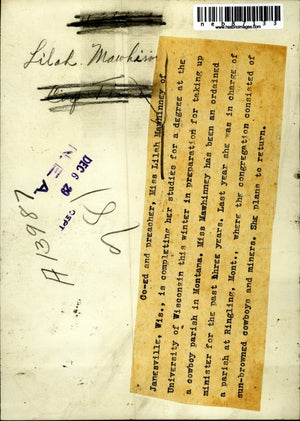 ne087733
www.historicimages.com
Lilah Mawhin
DEC 6 20
N.E.A.
A 13987
Co-ed and preacher, Miss Lilah Mawhinney of
Janesville, Wis., is completing her studies for a degree at the
University of Wisconsin this winter in preparation for taking up
a cowboy parish in Montana. Miss Mawhinney has been an ordained
minister for the past three years. Last year she was in charge of
a parish at Ringling, Mont., where the congregation consisted of
sun-browned cowboys and miners. She plans to return.